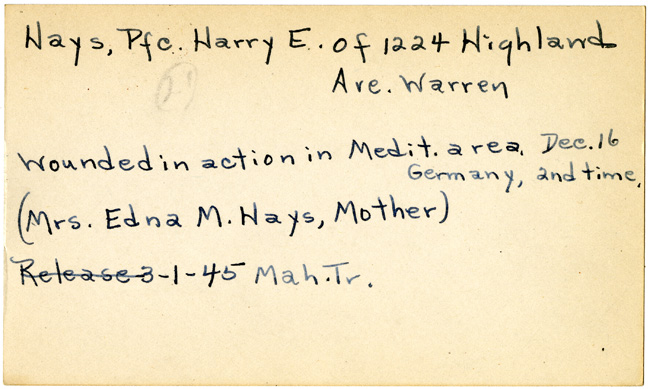 Hays, Pfc. Harry E. of 1224 Highland
Ave. Warren
Wounded in action in Medit. area. Dec. 16
Germany, 2nd time.
(Mrs. Edna M. Hays, Mother)
Release 3-1-45 Mah. Tr.